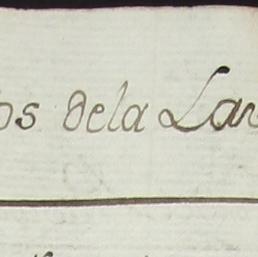 os dela Lan